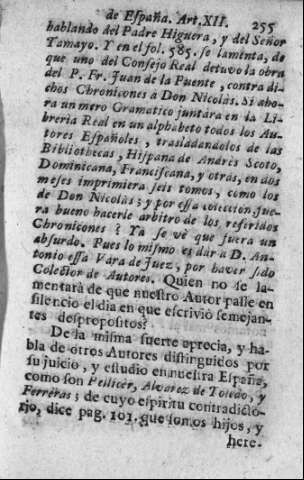 de España. Art. XII. 255
hablando del Padre Higuera, y del Señor
Tamayo. Y en el fol. 585. se lamenta, de
que uno del Consejo Real detuvo la obra
del P. Fr. Juan de la Puente, contra di-
chos Chronicones à Don Nicolás. Si aho-
ra un mero Gramatico juntára en la Li-
breria Real en un alphabeto todos los Au-
tores Españoles, trasladandolos de las
Bibliothecas, Hispana de Andrès Scoto,
Dominicana, Franciscana, y otras, en dos
meses imprimiera seis tomos, como los
de Don Nicolás; y por essa coleccion, fue-
ra bueno hacerle arbitro de los referidos
Chronicones? Ya se vè que fuera un
absurdo. Pues lo mismo es dàr à D. An-
tonio essa Vara de Juez, por haver sido
Colector de Autores. Quien no se la-
mentarà de que nuestro Autor passe en
silencio el dia en que escrivió semejan-
tes despropositos?
De la misma suerte aprecia, y ha-
bla de otros Autores distinguidos por
su juicio, y estudio en nuestra España,
como son Pellicèr, Alvarez de Toledo, y
Ferreras; de cuyo espiritu contradicto-
rio, dice pag. 101. que somos hijos, y
here-